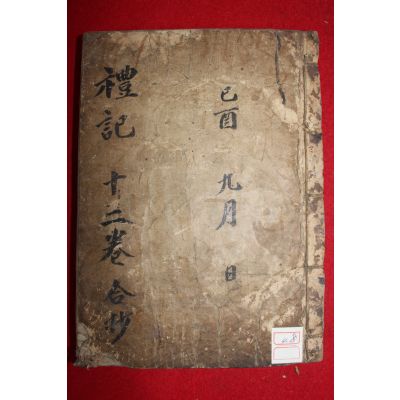 己酉 九月 日
禮記 十二卷 合抄